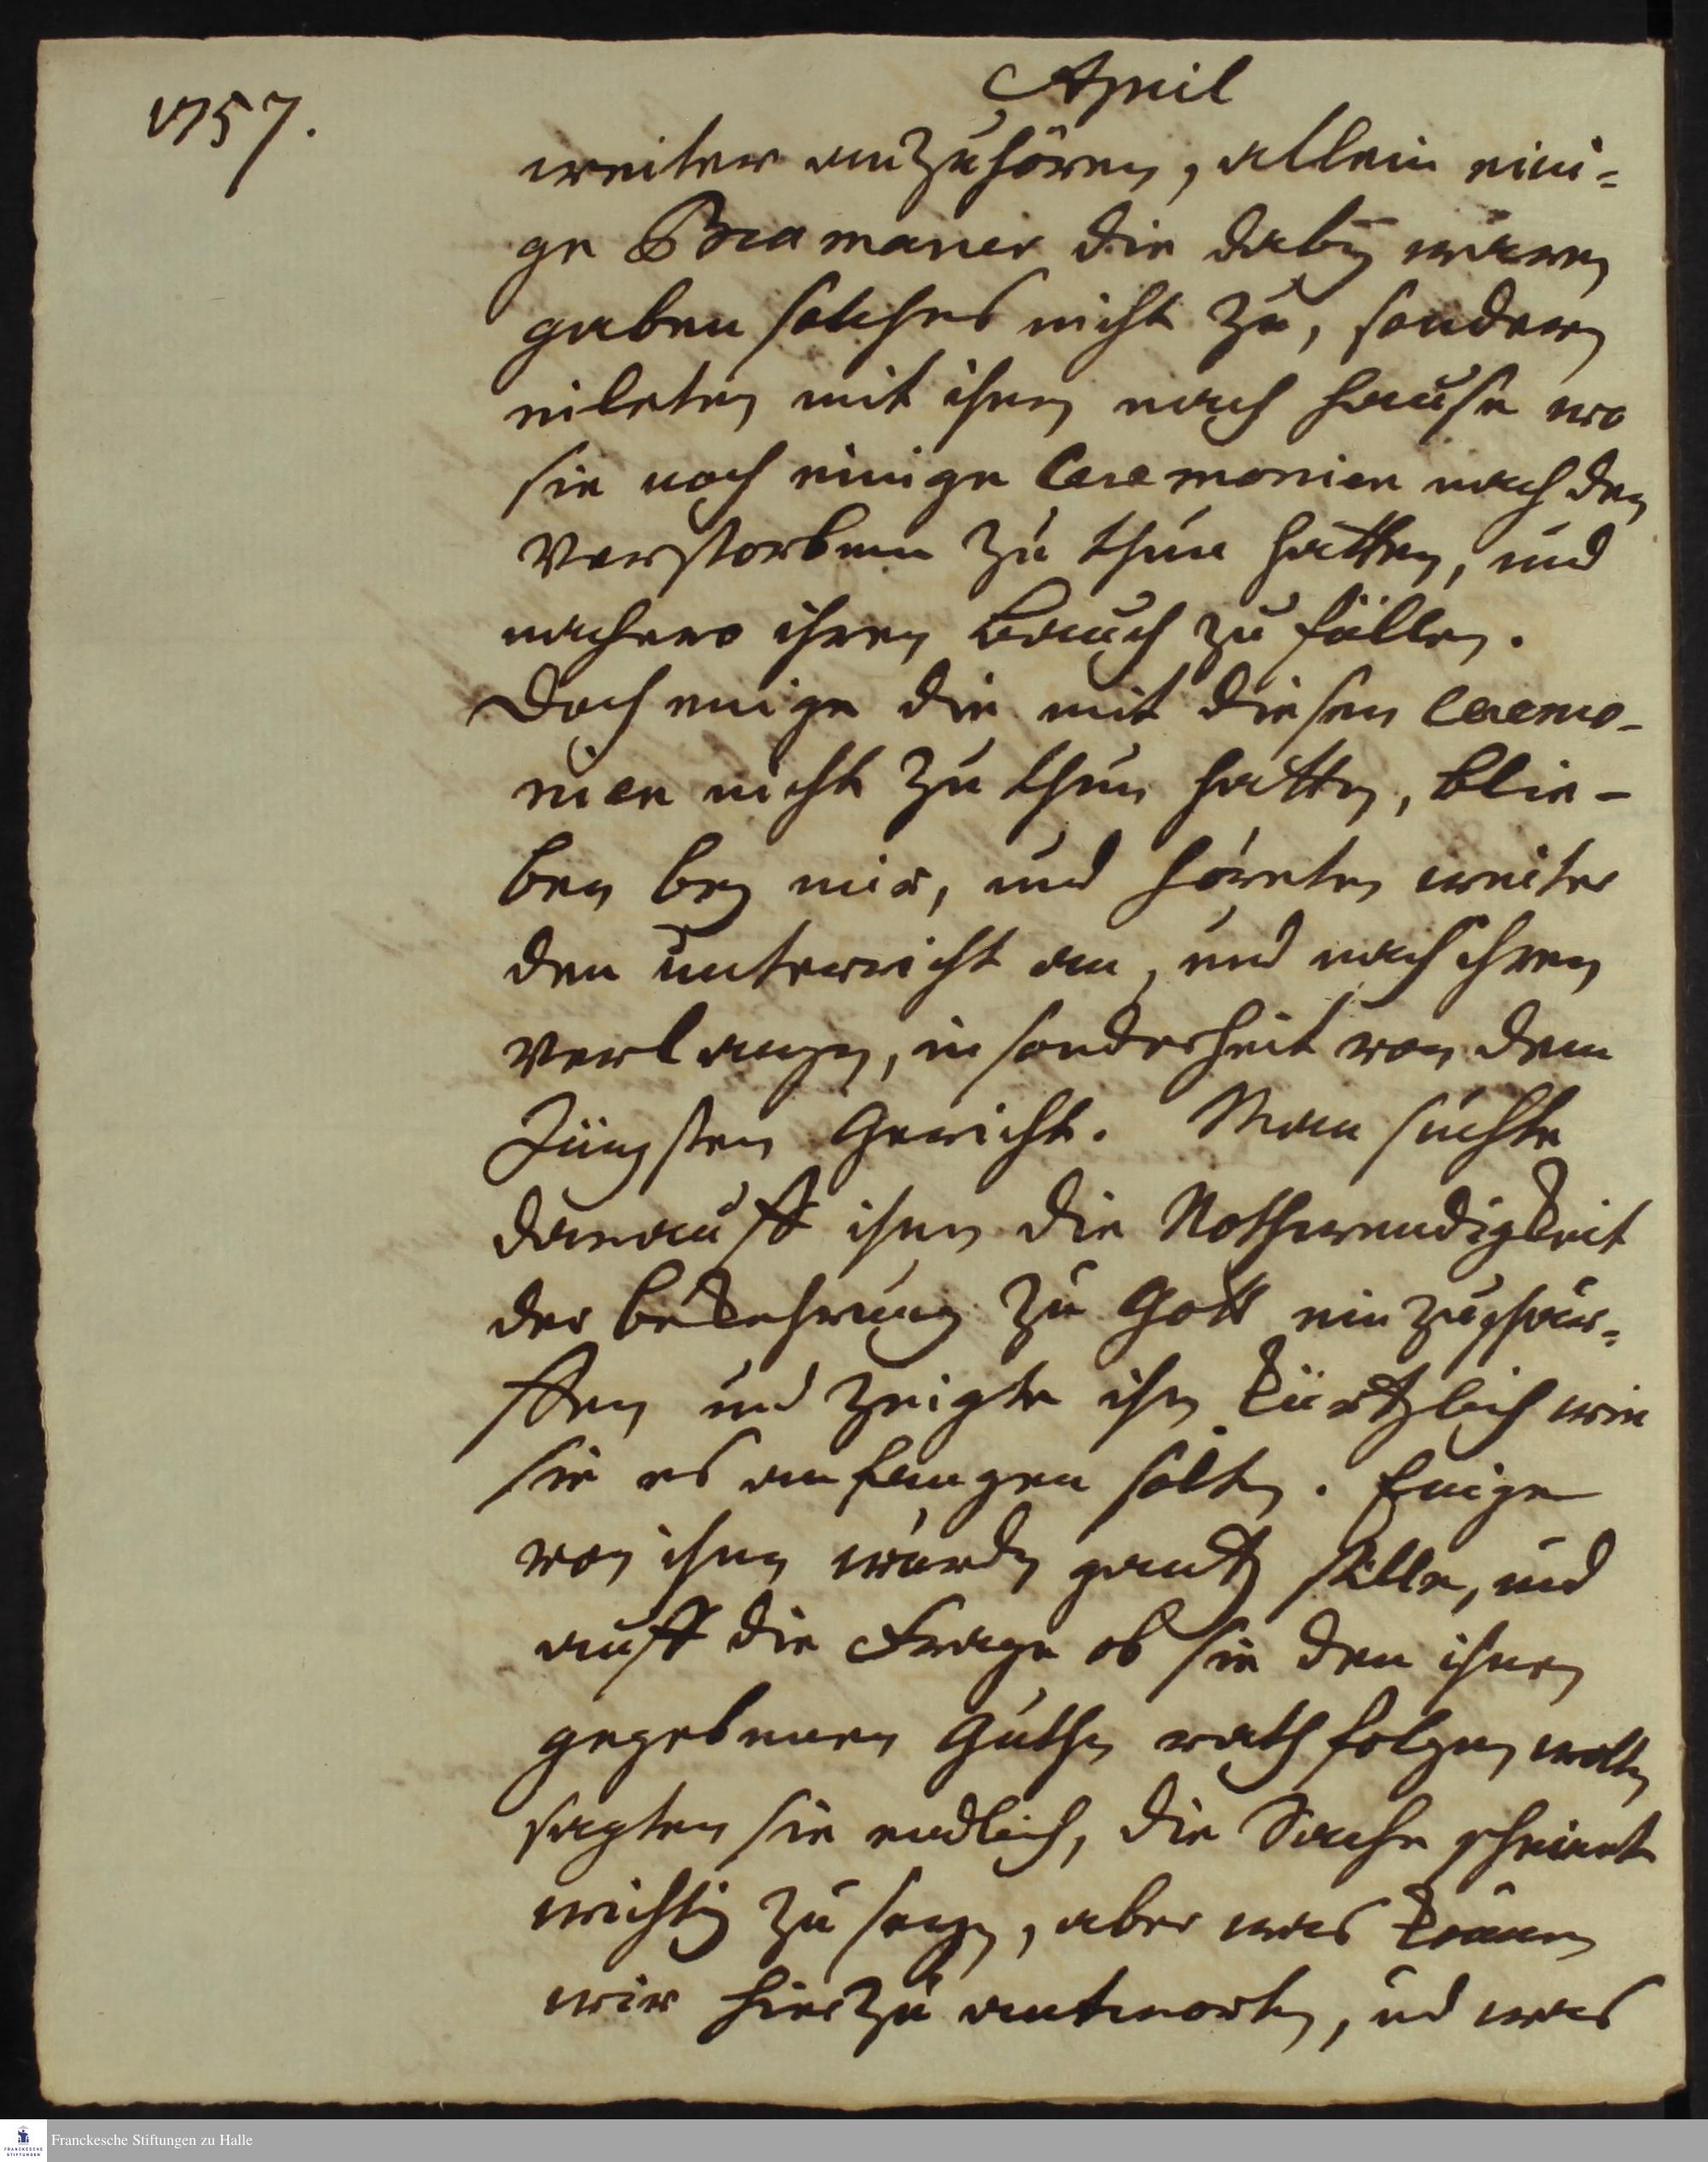 April
1757.
weiter anzuhören, allein eini-
ge Bramaner die dabeÿ waren
gaben solches nicht zu, sondern
eileten mit ihnen nach Hause wo
sie noch einige Ceremonien nach den
Verstorbenen zu thun hatten, und
nachero ihren Bauch zu füllen.
Doch einige die mit diesen Ceremo-
nien nicht zu thun hatten, blie-
ben beÿ mir, und höreten weiter
den unterricht an, und nach ihren
Verlangen, in sonderheit von dem
Jüngsten Gericht. Man suchte
darauff ihnen die Nothwendigkeit
der bekehrung zu Gott einzuschär-
ffen und zeigte ihn kürtzlich wie
sie es anfangen solten. Einige
von ihnen wurden gantz stille, und
auff die Frage ob sie den ihnen
gegebenen guthen rath folgen wolten
sagten sie endlich, die Sache scheinet
wichtig zu seyn, aber was können
wir hierzu antworten, und was
Franckesche Stiftungen zu Halle